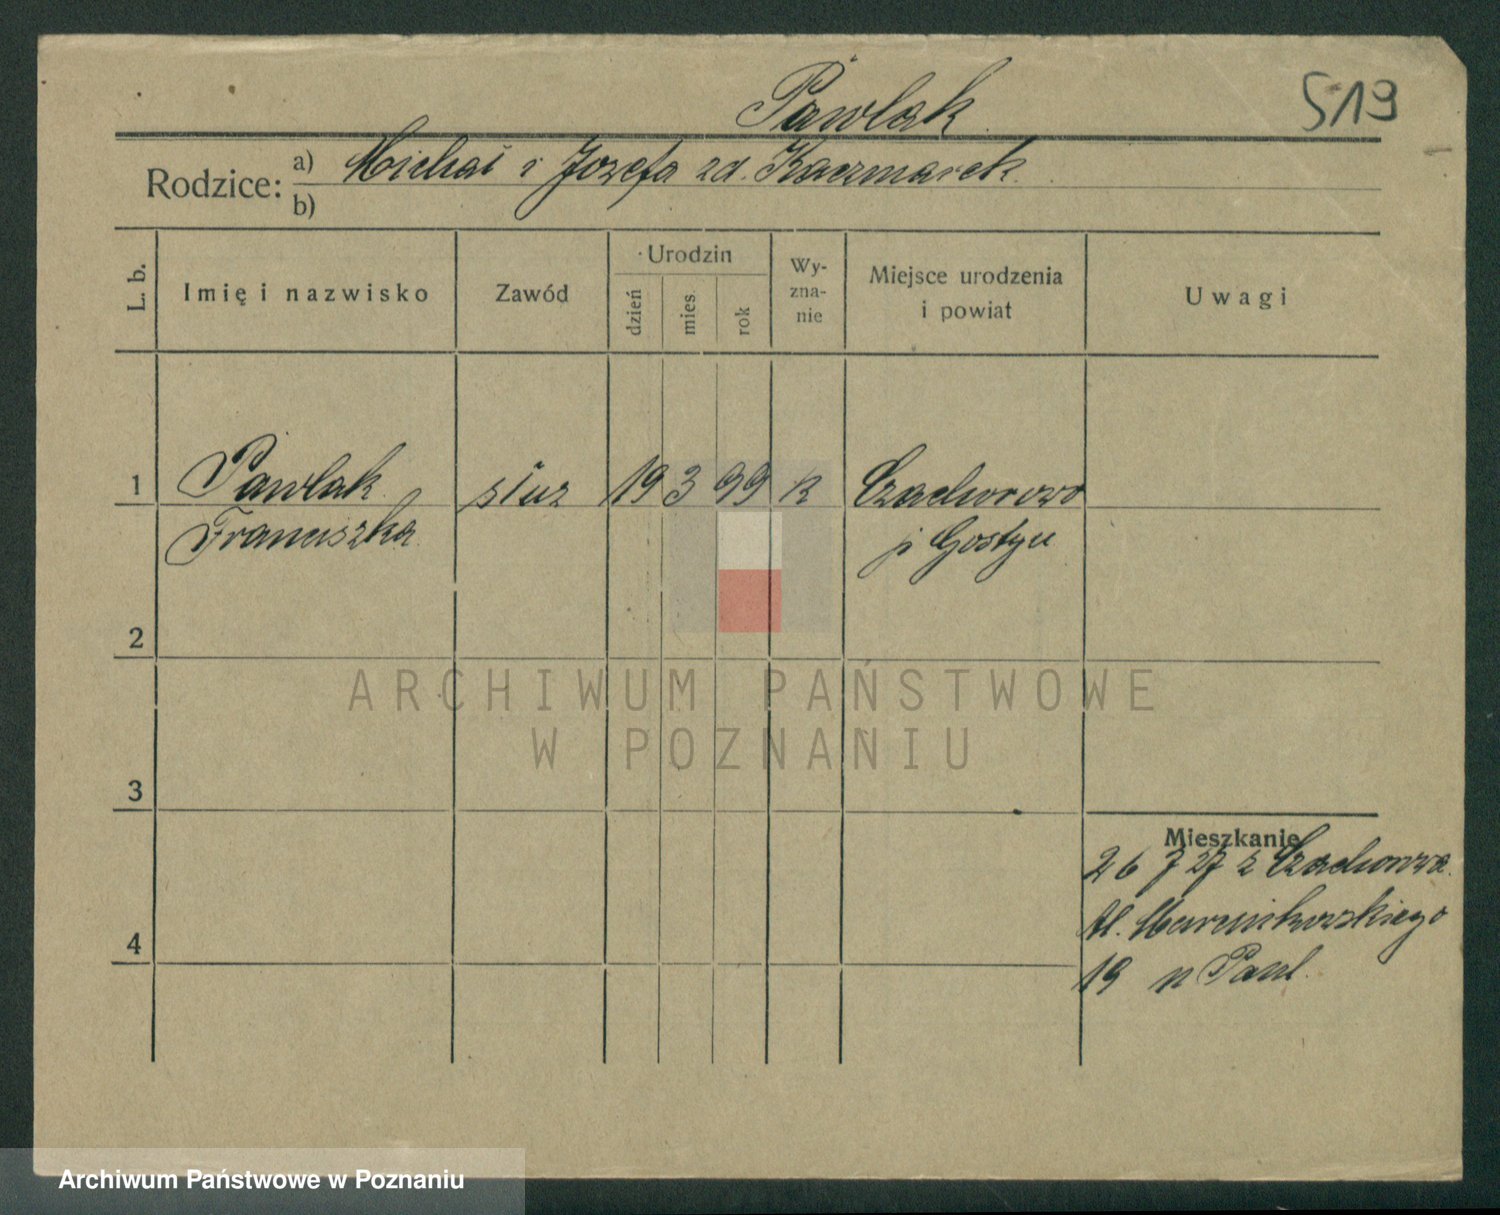 Pawlak
519
Rodzice:
a) Michał i Józefa zd. Kaczmarek
b)
L. b.
Imię i nazwisko
Zawód
Urodzin
dzień
mies.
rok
Wy-
zna-
nie
Miejsce urodzenia
i powiat
Uwagi
1 Pawlak służ 19 3 99 k Czachorowo
Franciszka p Gostyń
2
3
4
Mieszkanie
26 7 27 z Czachorowa
Al. Marcinkowskiego
19
ARCHIWUM PAŃSTWOWE
W POZNANIU
Archiwum Państwowe w Poznaniu